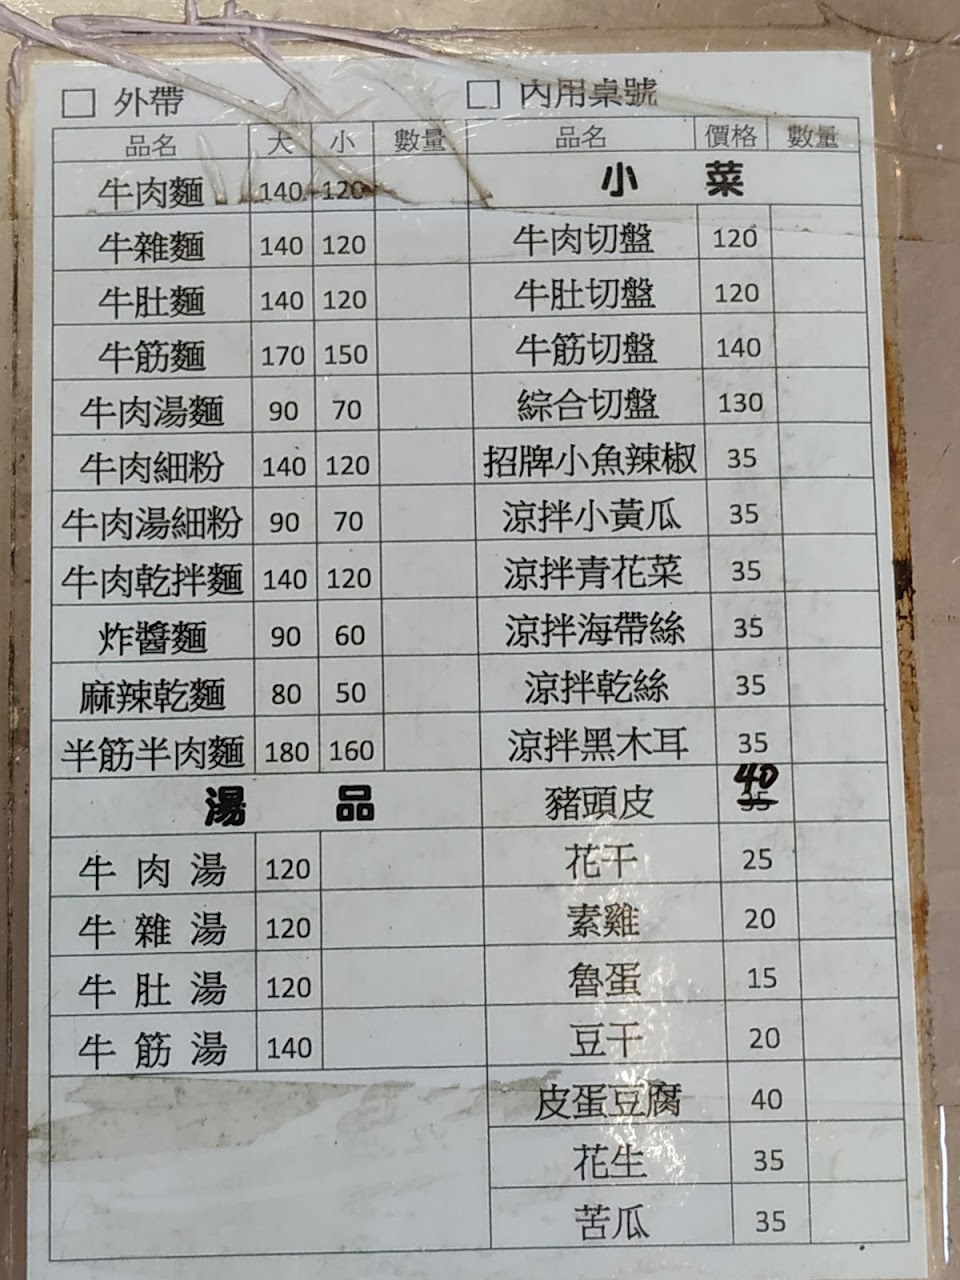 □ 外帶
□ 內用桌號
品名 大 小 數量
牛肉麵 140 120
牛雜麵 140 120
牛肚麵 140 120
牛筋麵 170 150
牛肉湯麵 90 70
牛肉細粉 140 120
牛肉湯細粉 90 70
牛肉乾拌麵 140 120
炸醬麵 90 60
麻辣乾麵 80 50
半筋半肉麵 180 160
湯 品
牛肉湯 120
牛雜湯 120
牛肚湯 120
牛筋湯 140
品名 價格 數量
小 菜
牛肉切盤 120
牛肚切盤 120
牛筋切盤 140
綜合切盤 130
招牌小魚辣椒 35
涼拌小黃瓜 35
涼拌青花菜 35
涼拌海帶絲 35
涼拌乾絲 35
涼拌黑木耳 35
豬頭皮 40 35
花干 25
素雞 20
魯蛋 15
豆干 20
皮蛋豆腐 40
花生 35
苦瓜 35